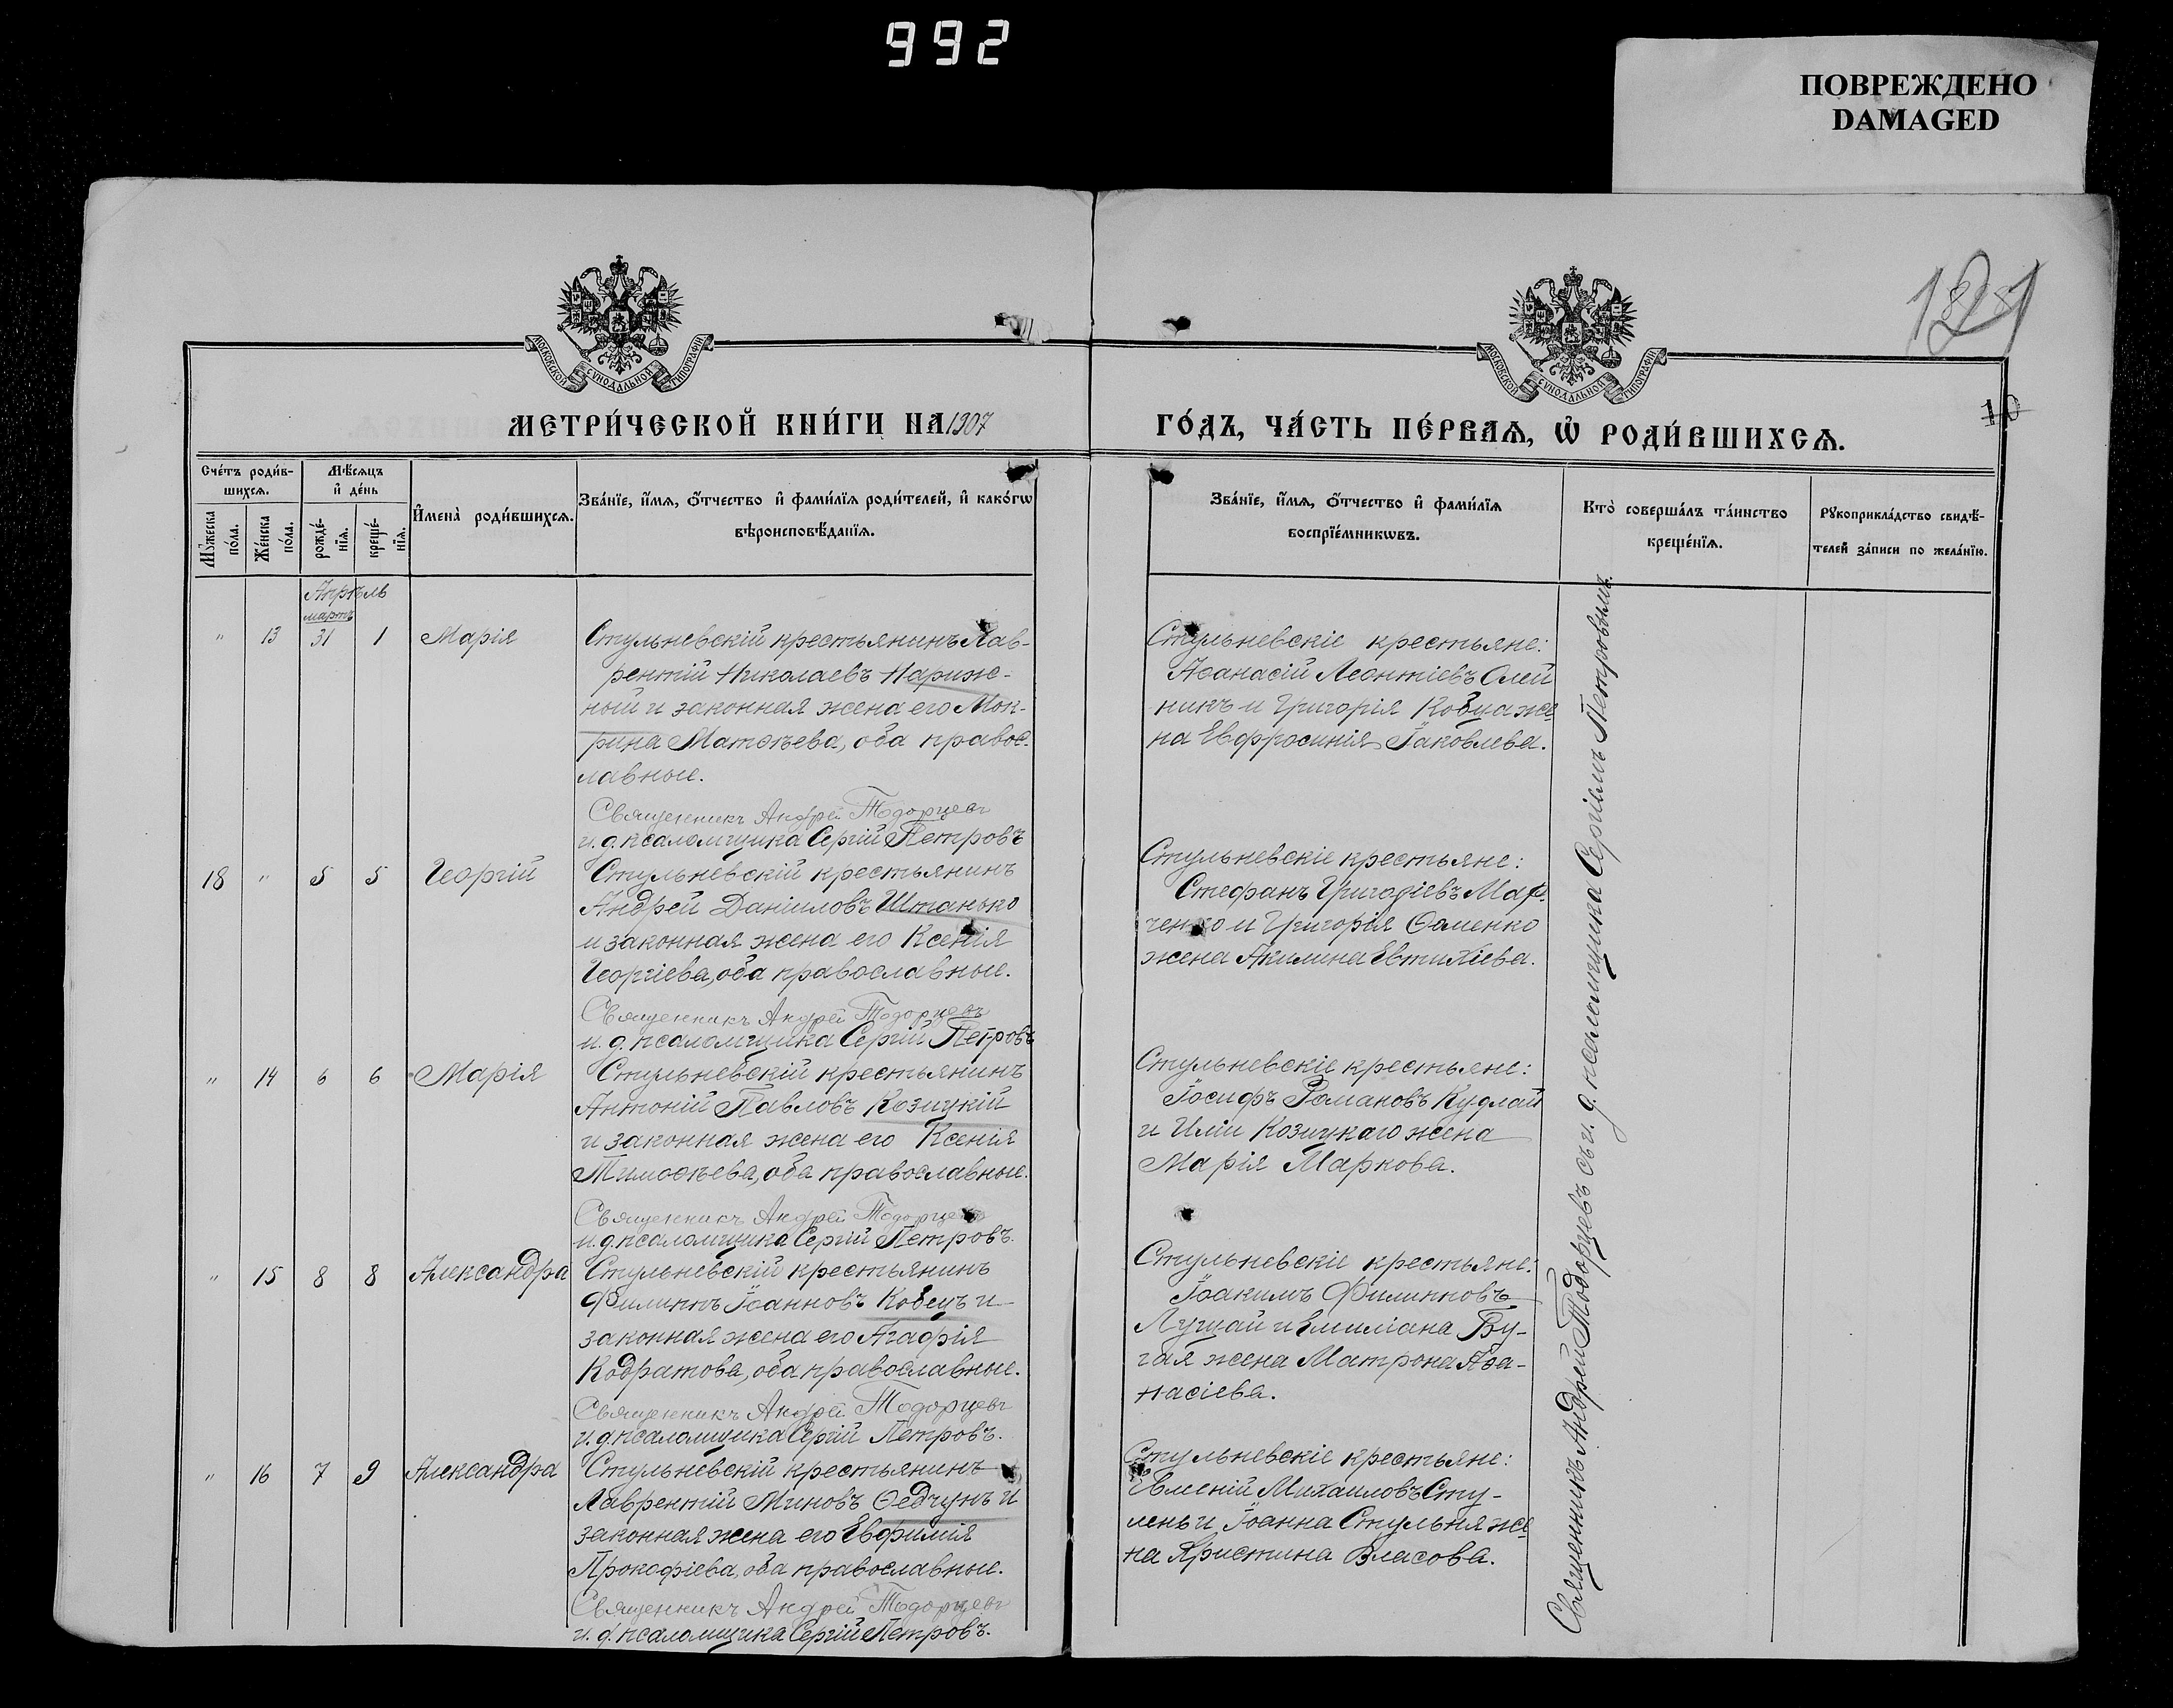 992
ПОВРЕЖДЕНО
DAMAGED
МОСКОВСКОЙ СѴНОДАЛЬНОЙ ТИПОГРАФІИ
МОСКОВСКОЙ СѴНОДАЛЬНОЙ ТИПОГРАФІИ
10
МЕТРИ́ЧЕСКОЙ КНИ́ГИ НА 1907
ГО́ДЪ, ЧА́СТЬ ПЕ́РВАѦ, Ѡ҆ РОДИ́ВШИХСѦ.
Сче́тъ роди́в-
шихсѧ.
Мѣ́сѧцъ
и҆ де́нь
Мꙋ́жеска
по́ла.
Же́нска
по́ла.
рожде́-
нїѧ.
креще́-
нїѧ.
И҆мена̀ роди́вшихсѧ.
Зва́нїе, и҆́мѧ, ѻ҆́тчество и҆ фами́лїѧ роди́телей, и҆ како́гѡ
вѣроисповѣ́данїѧ.
Зва́нїе, и҆́мѧ, ѻ҆́тчество и҆ фами́лїѧ
воспрїе́мникѡвъ.
Кто̀ соверша́лъ та́инство
креще́нїѧ.
Рꙋкоприкла́дство свидѣ́-
телей за́писи по жела́нїю.
Апрѣль
мартъ
" 13 31 1 Марія
Стульневскій крестьянинъ Лав-
рентій Николаевъ Нариж-
ный и законная жена его Мок-
рина Матѳѣева, оба правос-
лавные.
Священникъ Андрей Тодорцевъ
и. д. псаломщика Сергій Петровъ
Стульневскіе крестьяне:
Аѳанасій Леонтіевъ Олей
никъ и Григорія Кобца же
на Евфросинія Іаковлева.
18 " 5 5 Георгій
Стульневскій крестьянинъ
Андрей Даніиловъ Штанько
и законная жена его Ксенія
Георгіева, оба православные.
Священникъ Андрей Тодорцевъ
и. д. псаломщика Сергій Петровъ
Стульневскіе крестьяне:
Стефанъ Григоріевъ Мар-
ченко и Григорія Ѳоменко
жена Акилина Евтихіева.
" 14 6 6 Марія
Стульневскій крестьянинъ
Антоній Павловъ Козицкій
и законная жена его Ксенія
Тимоѳѣева, оба православные.
Священникъ Андрей Тодорцевъ
и. д. псаломщика Сергій Петровъ.
Стульневскіе крестьяне:
Іосифъ Романовъ Кудлай
и Иліи Козицкаго жена
Марія Маркова.
" 15 8 8 Александра
Стульневскій крестьянинъ
Филиппъ Іоанновъ Кобецъ и
законная жена его Агафія
Кодратова, оба православные.
Священникъ Андрей Тодорцевъ
и. д. псаломщика Сергій Петровъ.
Стульневскіе крестьяне:
Іоакимъ Филипповъ
Лущай и Емиліана Бу-
гая жена Матрона Аѳа-
насіева.
" 16 7 9 Александра
Стульневскій крестьянинъ
Лаврентій Миновъ Ѳедчунъ и
законная жена его Евфимія
Прокофіева, оба православные.
Священникъ Андрей Тодорцевъ
и. д. псаломщика Сергій Петровъ.
Стульневскіе крестьяне:
Евменій Михаиловъ Сту-
лень и Іоанна Стульня же
на Христина Власова.
Священникъ Андрей Тодорцевъ съ и. д. псаломщика Сергіемъ Петровымъ.